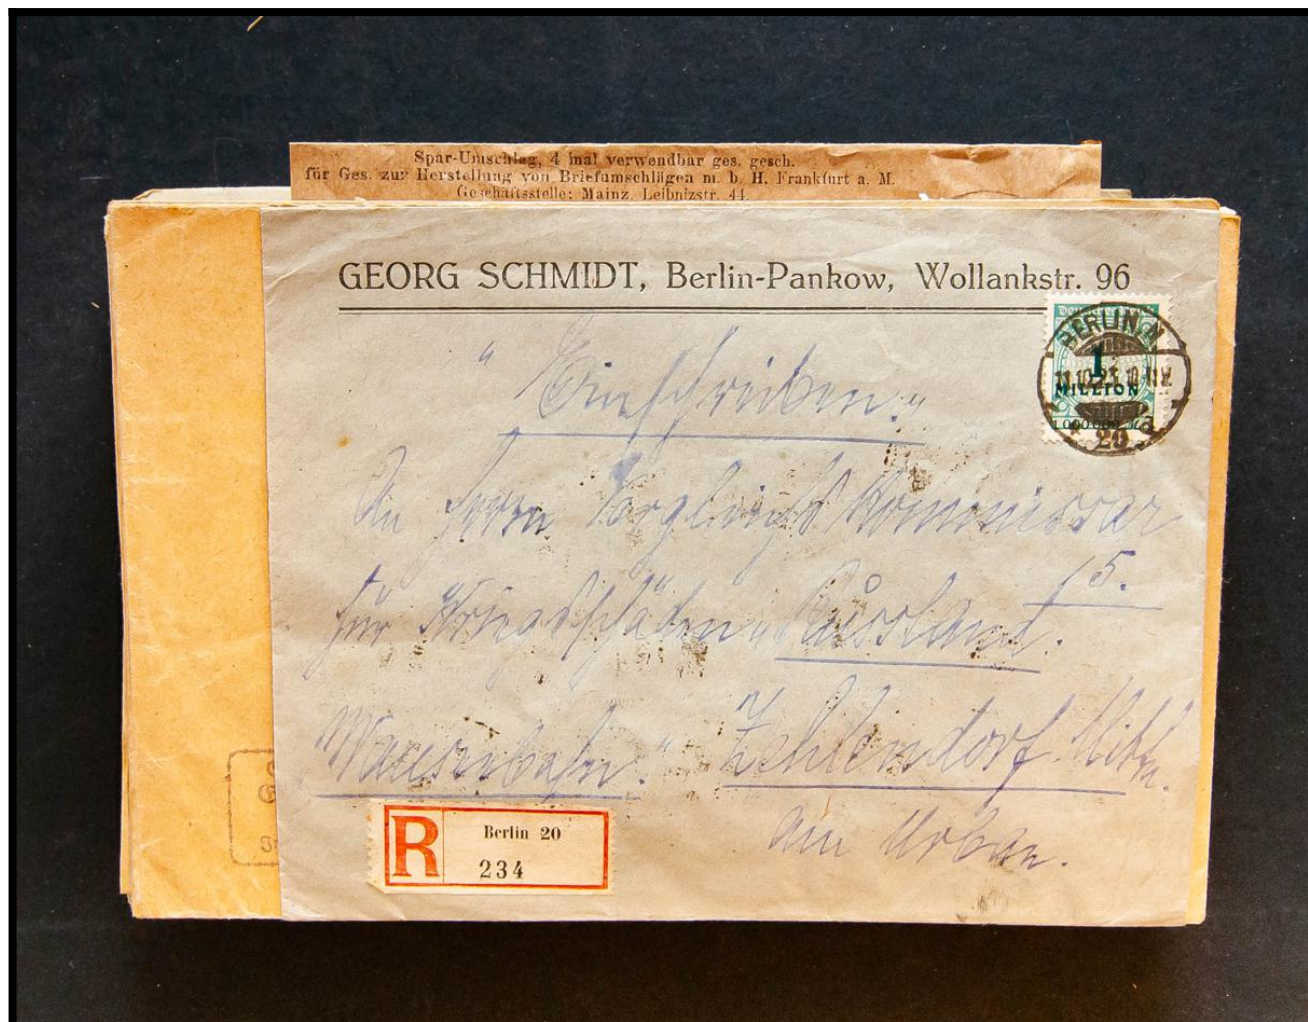 Spar-Umschlag, 4 mal verwendbar ges. gesch.
für Ges. zur Herstellung von Briefumschlägen m. b. H. Frankfurt a. M.
Geschäftsstelle: Mainz, Leibnizstr. 44
GEORG SCHMIDT, Berlin-Pankow, Wollankstr. 96
BERLIN N
1
MILLION
20
"Einschreiben."
An Herrn Kommissar
15.
für Kriegsschäden "Russland.
Zehlendorf
am Urban.
R
Berlin 20
234